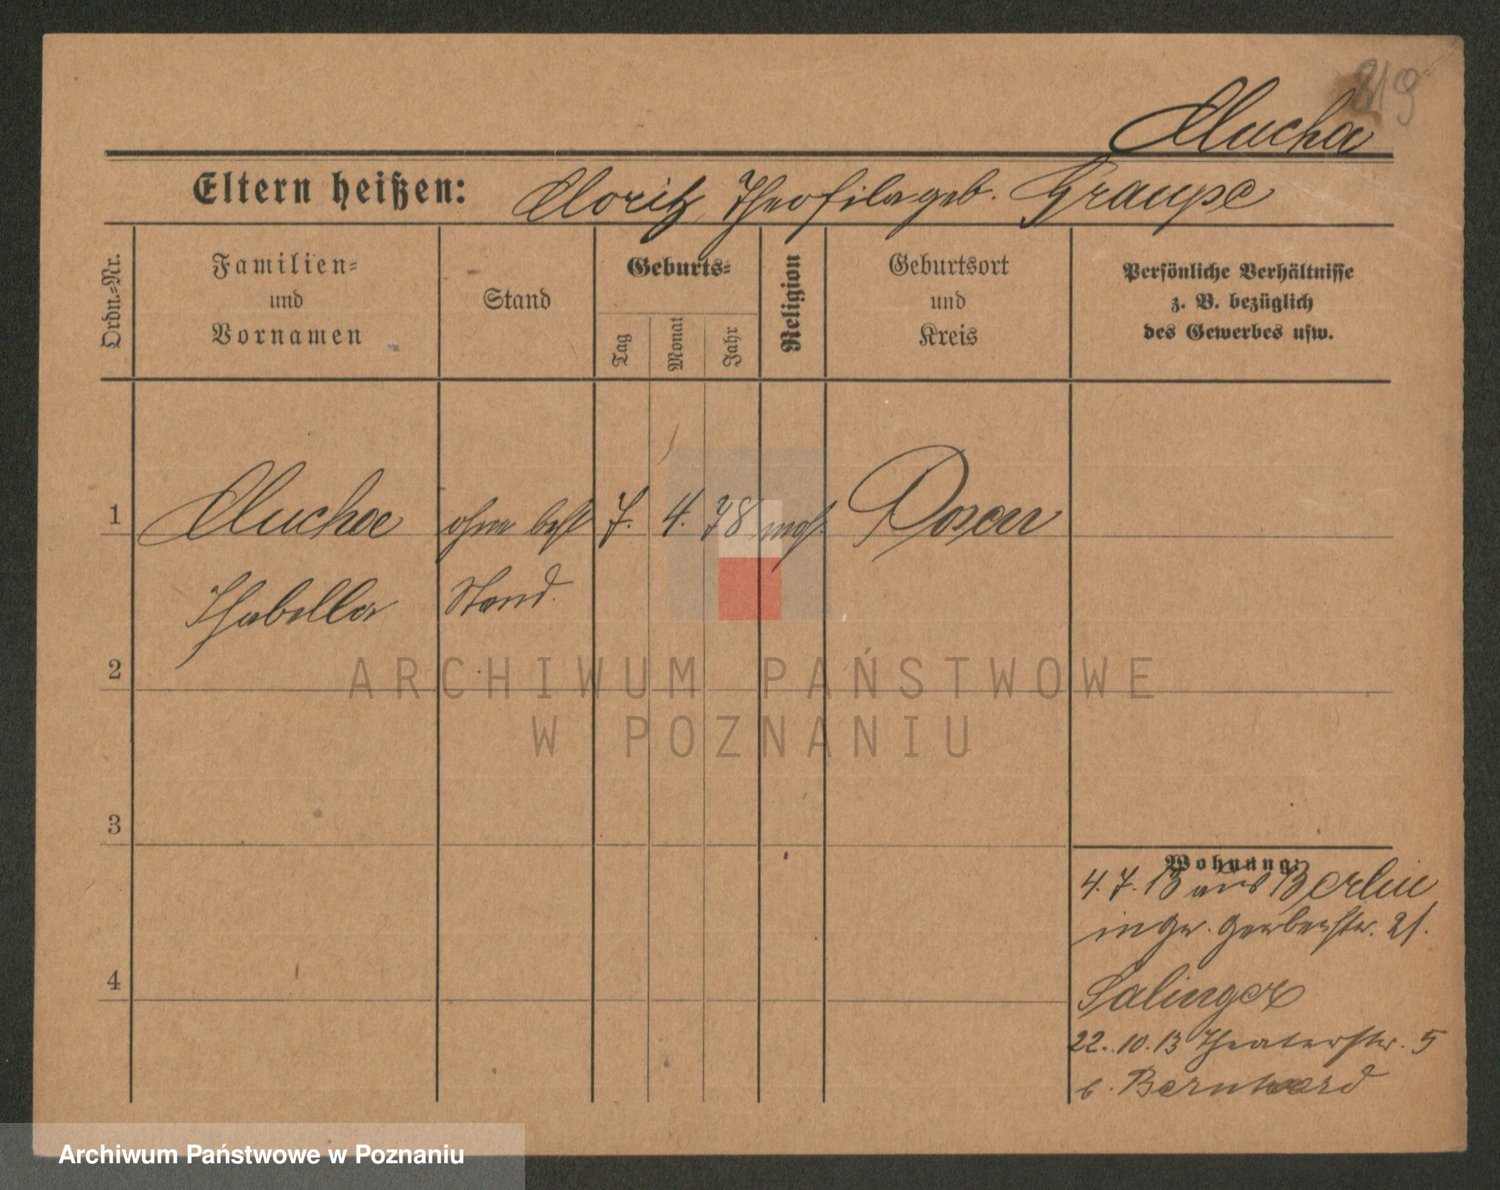 819
Mucha
Eltern heißen: Moritz, Theofila geb. Graupe
Ordn.-Nr.
Familien-
und
Vornamen
Stand
Geburts-
Tag
Monat
Jahr
Religion
Geburtsort
und
Kreis
Persönliche Verhältnisse
z. B. bezüglich
des Gewerbes usw.
1 Mucha ohne best 7. 4. 78 mos. Posen
Isabella Stand.
2
3
4
Wohnung:
4.7.13 aus Berlin
in Gr. Gerberstr. 21.
Salinger
22.10.13 Theaterstr. 5
b. Bernhard
ARCHIWUM PAŃSTWOWE
W POZNANIU
Archiwum Państwowe w Poznaniu